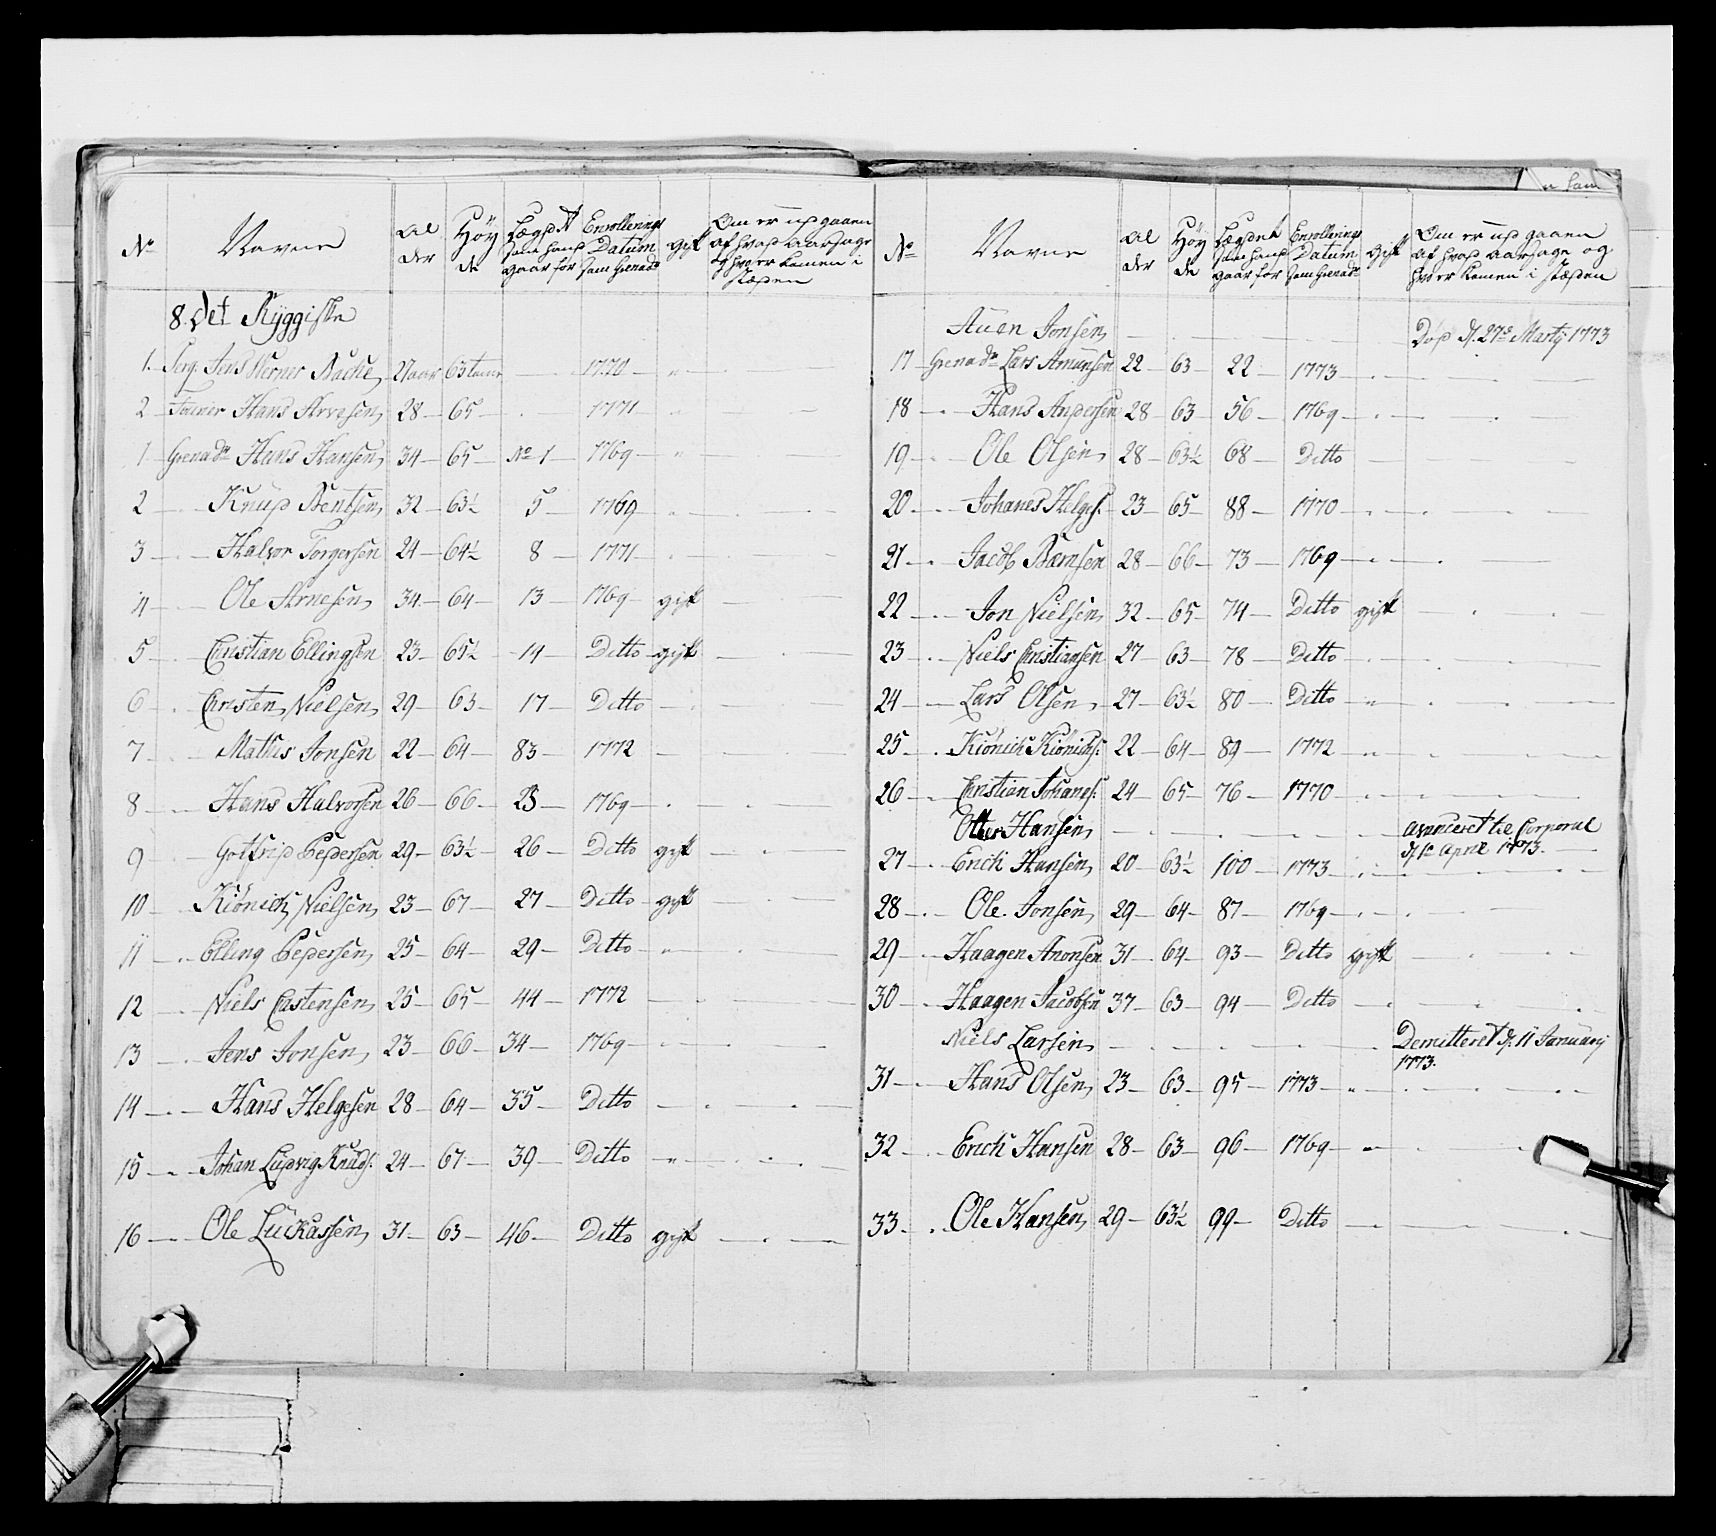 No Navne Al der Höy de Lægdet som hand gaar for Enrollerings Datum som Grenadr gift Om er udgaaen af hvad aarsage og hvo er kommen i stæden
8. Det Ryggiske
1. Serg. Jens Werner Bache 27 aar 63 tomr 1770
2 Tourier Hans Arvesen 28 65 1771
1 Grenadr Hans Hansen 34 65 No 1 1769
2 Knud Bentsen 32 63½ 5 1769
3 Halvor Torgersen 24 64½ 8 1771
4 Ole Arnesen 34 64 13 1769 gift
5 Christian Ellingsen 23 65½ 14 Ditto gift
6 Christen Nielsen 29 63 17 Ditto
7 Mathis Jonsen 22 64 83 1772
8 Hans Halvorsen 26 66 23 1769
9 Gotfrid Pedersen 29 63½ 26 Ditto gift
10 Kiönich Nielsen 23 67 27 Ditto gift
11 Elling Pedersen 25 64 29 Ditto
12 Niels Castensen 25 65 44 1772
13 Jens Jonsen 23 66 34 1769
14 Hans Helgesen 28 64 35 Ditto
15 Johan Ludvig Knuds. 24 67 39 Ditto
16 Ole Luckassen 31 63 46 Ditto gift
No Navne Al der Höy de Lægdet som hand gaar for Enrollerings Datum som Grenadr Gift Om er udgaaen af hvad aarsage og hvo er kommen i stæden
Auen Jonsen Död d. 27de Martij 1773
17 Grenadr Lars Amunsen 22 63 22 1773
18 Hans Andersen 28 63 56 1769
19 Ole Olsen 28 63½ 68 Ditto
20 Johanes Helges. 23 65 88 1770
21 Jacob Bærnsen 28 66 73 1769
22 Jon Nielsen 32 65 74 Ditto gift
23 Niels Christiansen 27 63 78 Ditto
24 Lars Olsen 27 63½ 80 Ditto
25 Kiönich Kiönichs. 22 64 89 1772
26 Christian Johanes. 24 65 76 1770
Otter Hansen avanceret til Corporal d. 1te April 1773.
27 Erich Hansen 20 63½ 100 1773
28 Ole Jonsen 29 64 87 1769
29 Haagen Anonsen 31 64 93 Ditto gift
30 Haagen Jacobsen 37 63 94 Ditto
Niels Larsen Demitteret d. 11 Januarij 1773.
31 Hans Olsen 23 63 95 1773
32 Erich Hansen 28 63 96 1769
33 Ole Hansen 29 63½ 99 Ditto